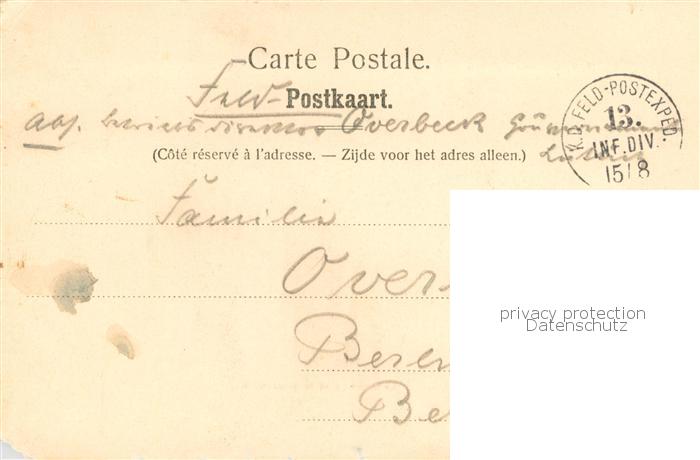 Carte Postale.
Feld-Postkaart.
Abs. Betriebsdirektor Overbeck
(Côté réservé à l'adresse. — Zijde voor het adres alleen.)
K.D. FELD-POSTEXPED.
13.
INF. DIV.
15/8
Familie
Over-
privacy protection
Datenschutz
Beren
Be